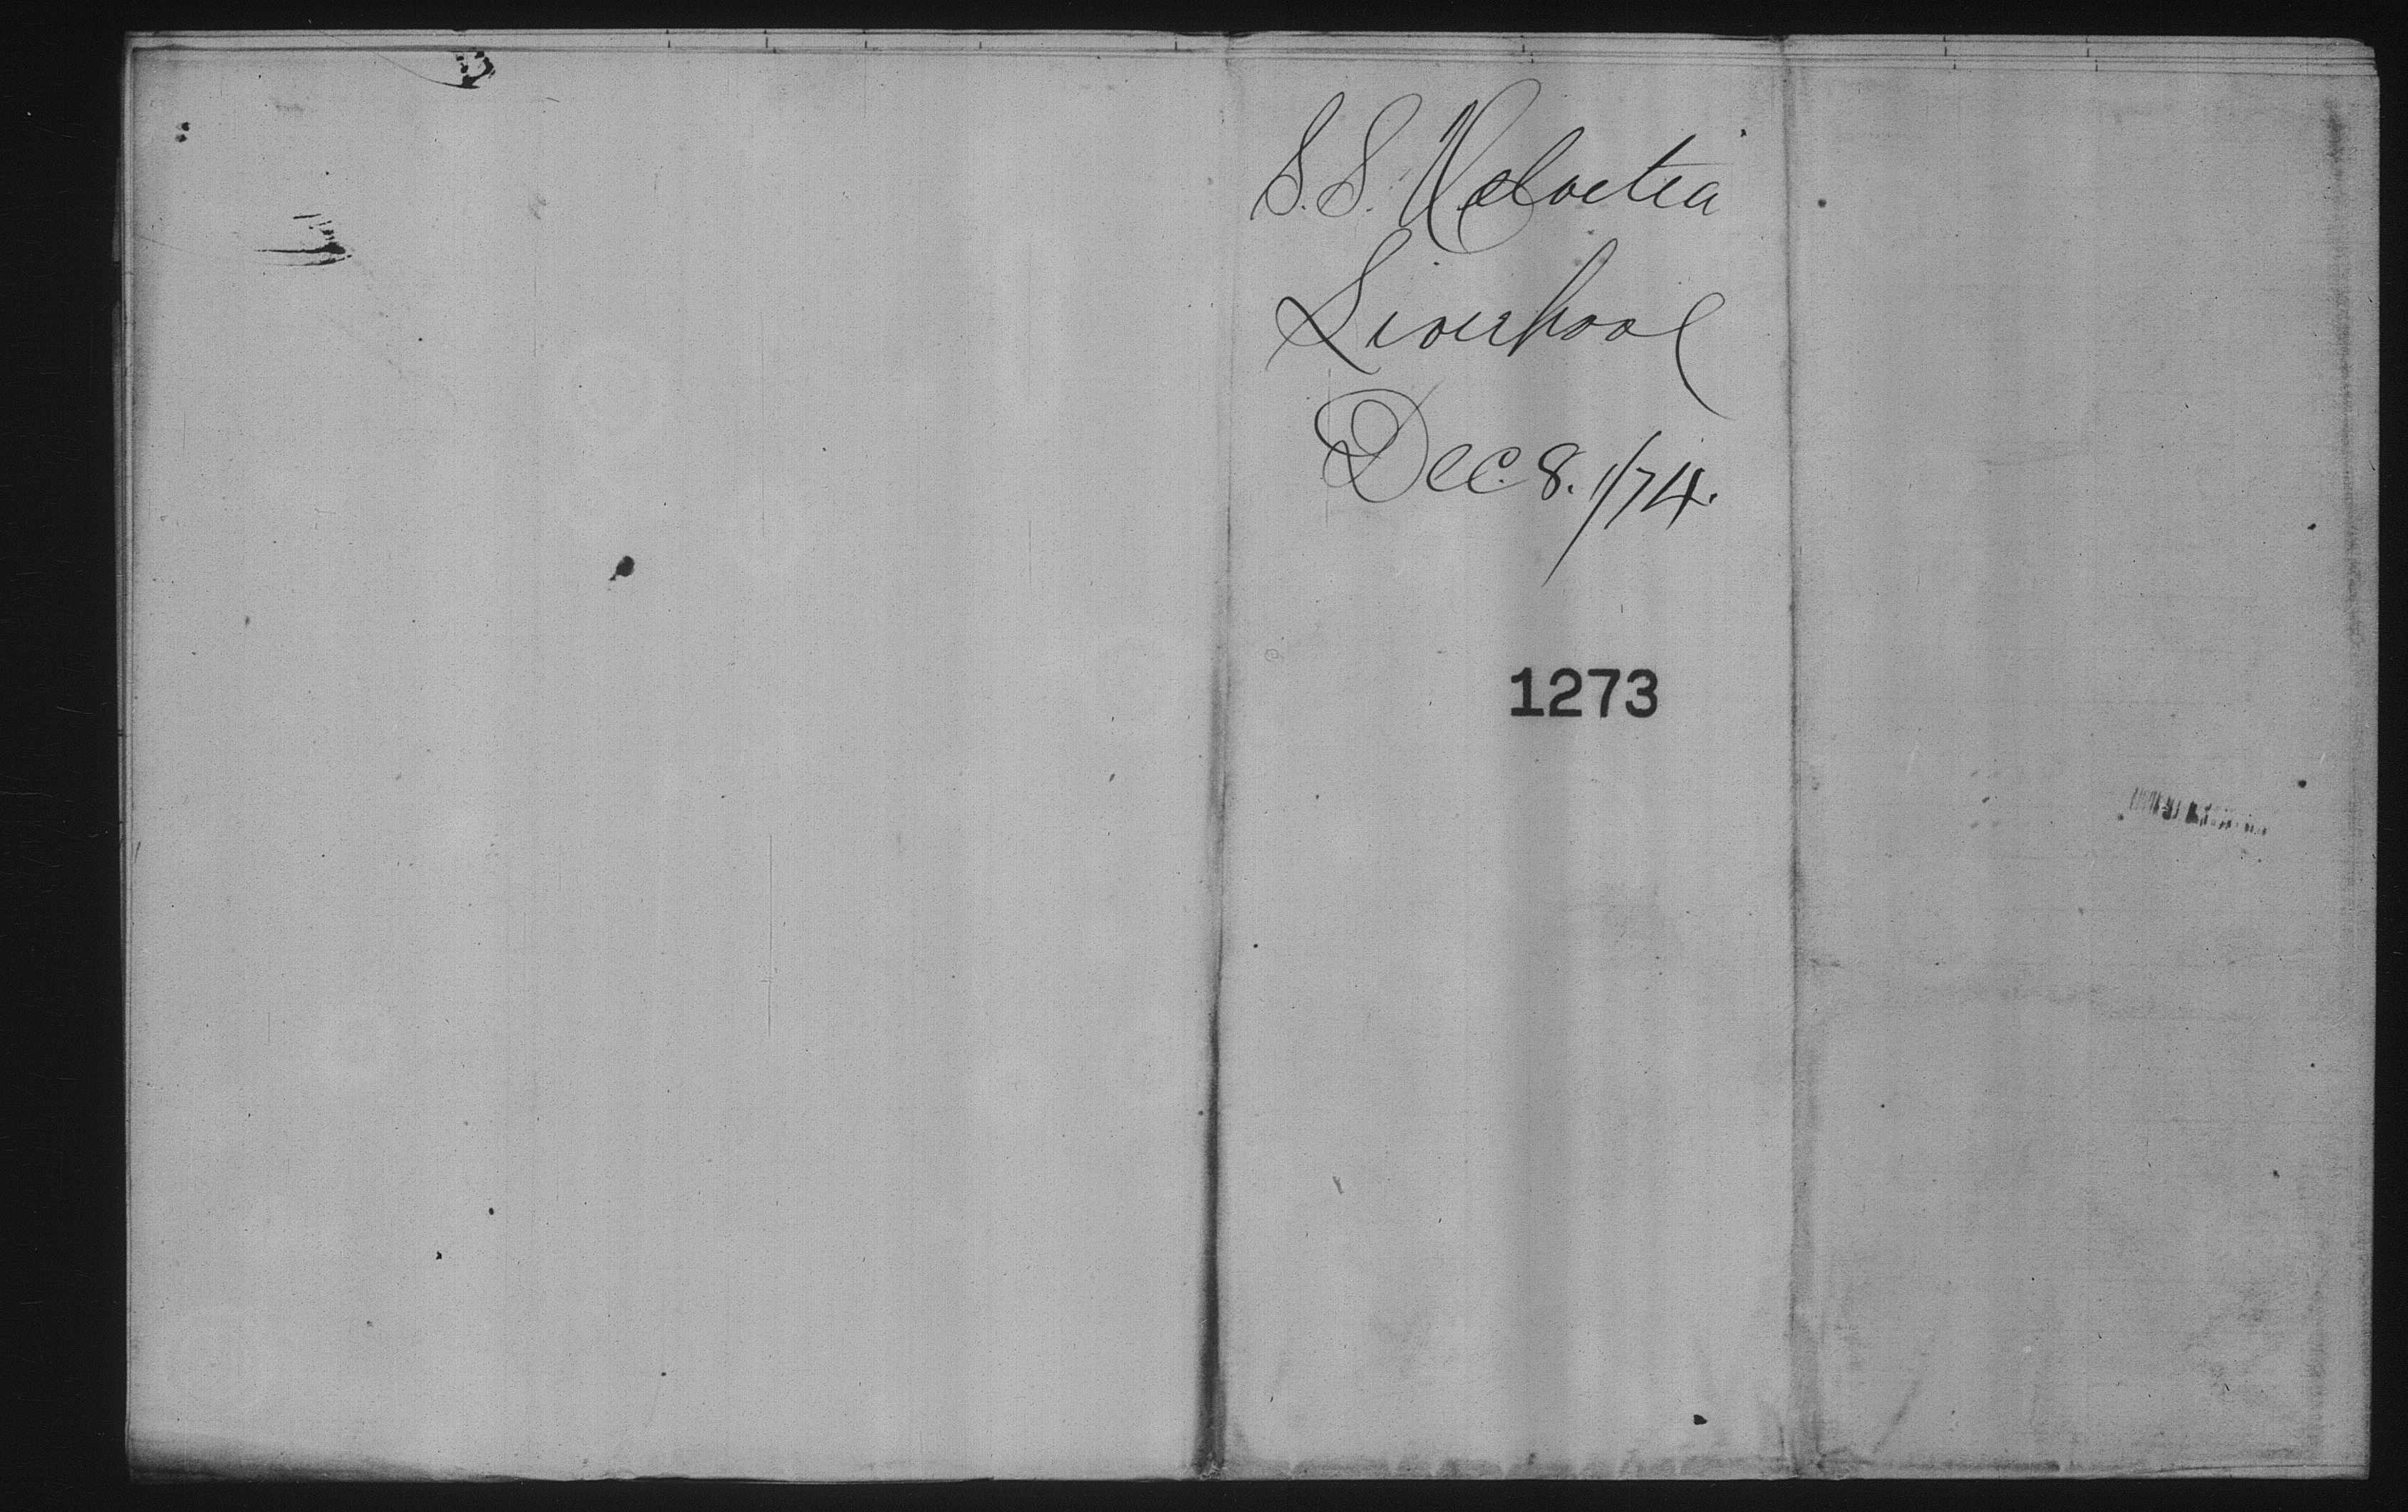 S.S. Helvetia
Liverpool
Dec. 8. /74.
1273